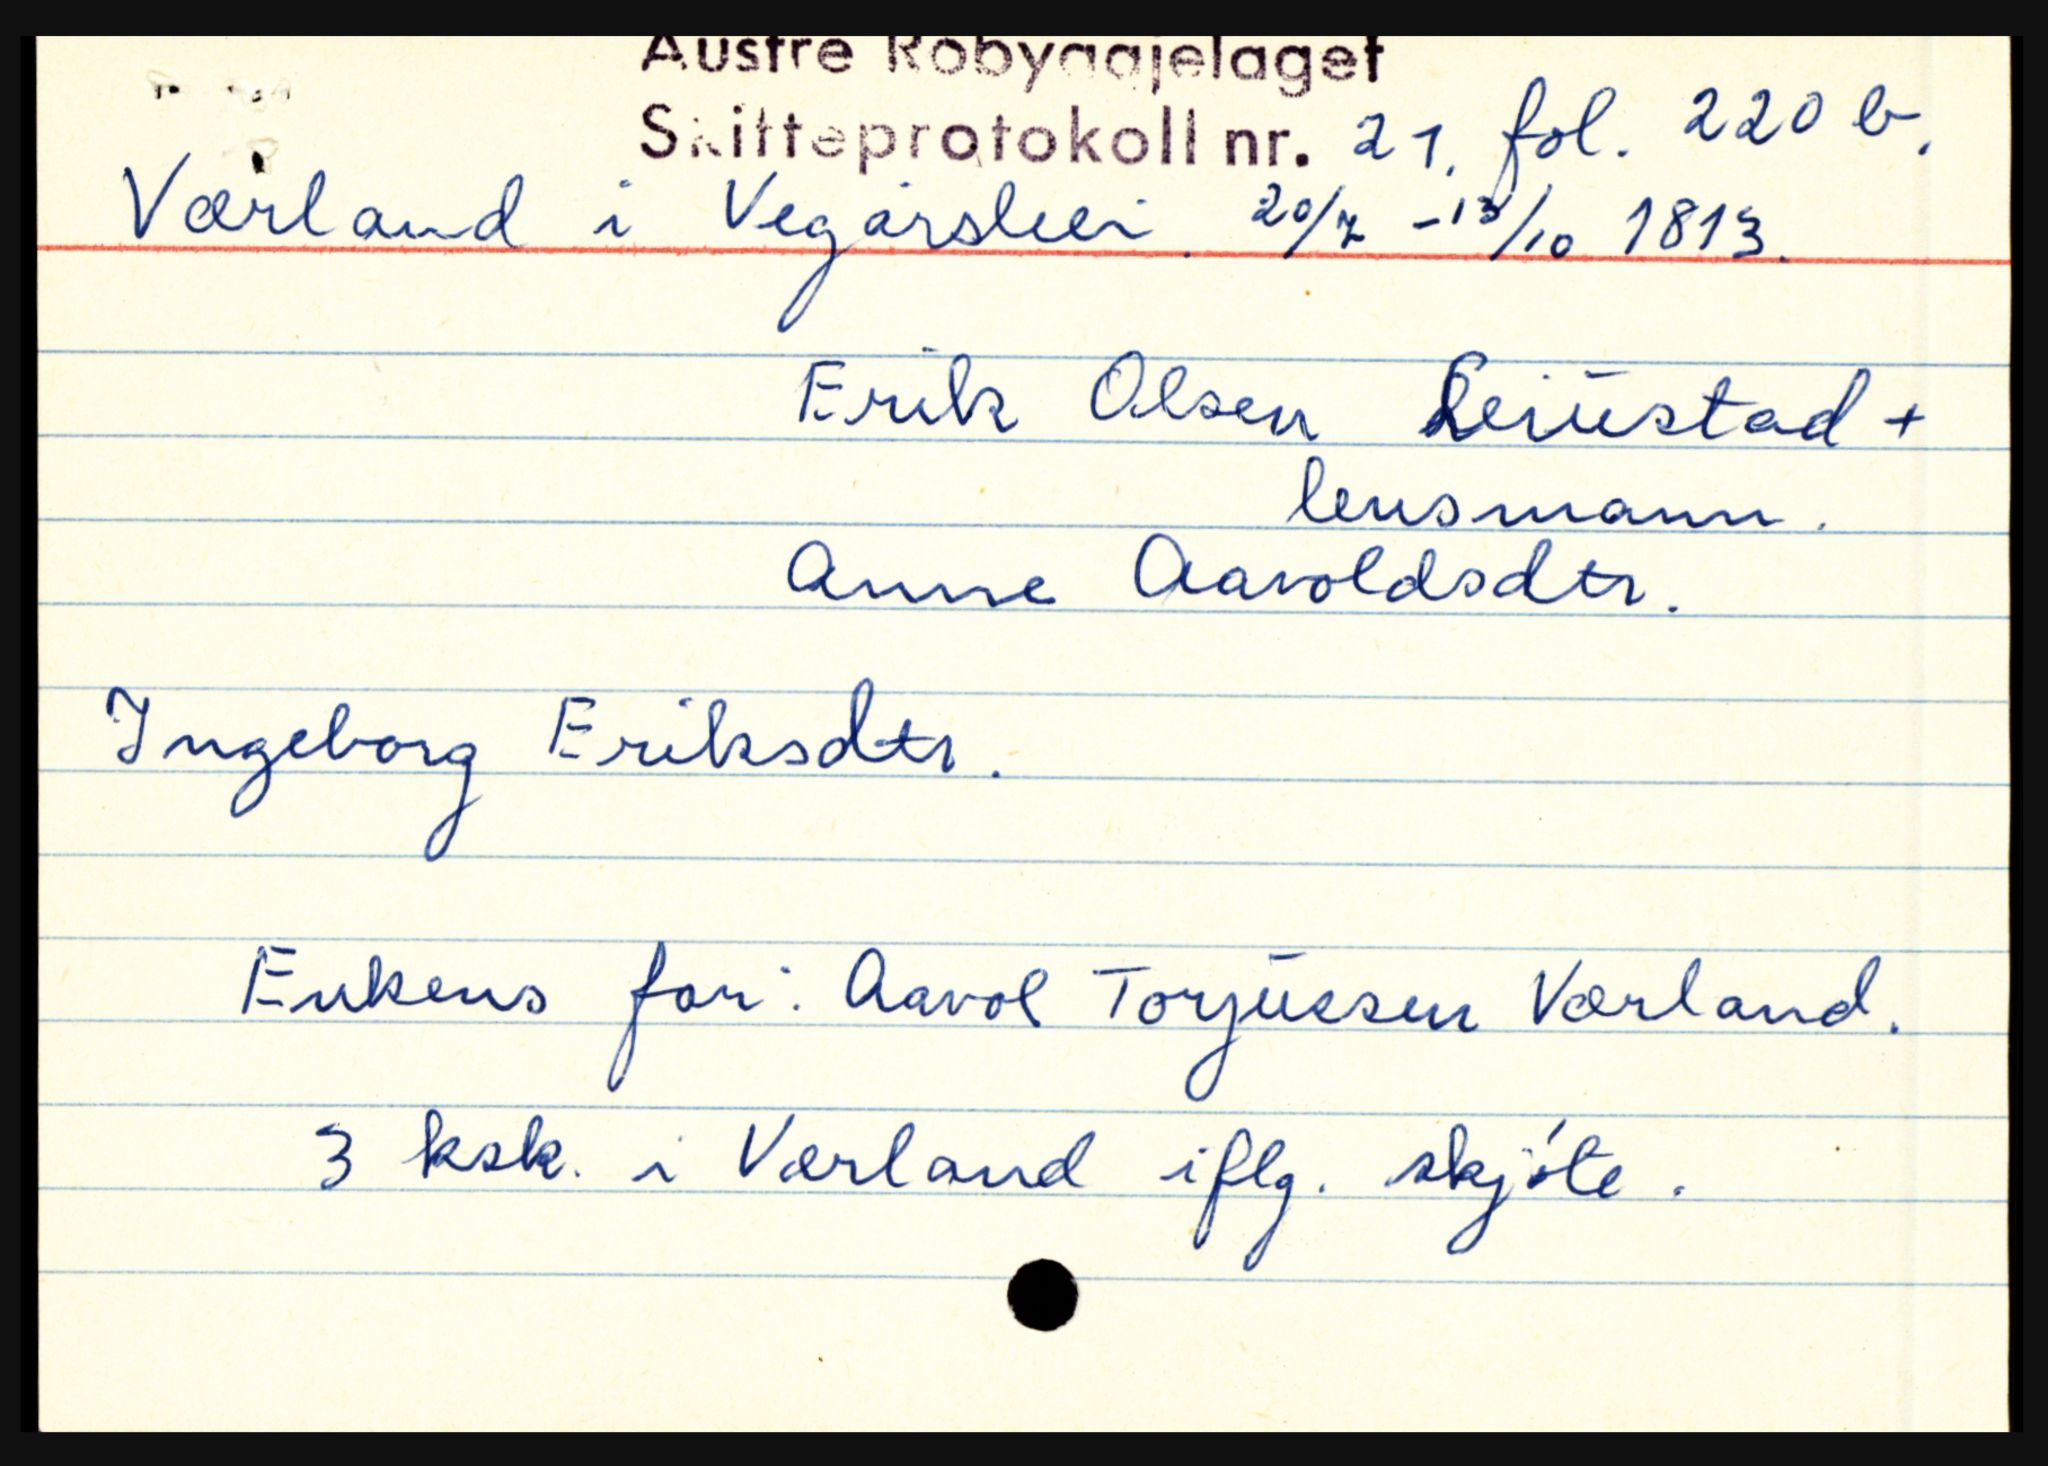 Austre Robyggjelaget
Skifteprotokoll nr. 21. fol. 220 b.
Værland i Vegårshei. 20/7 - 13/10 1813.
Erik Olsen Leiüstad +
lensmann.
Anne Aavoldsdtr.
Ingeborg Eriksdtr.
Enkens far: Aavol Torjüssen Værland.
3 ksk. i Værland iflg. skjöte.